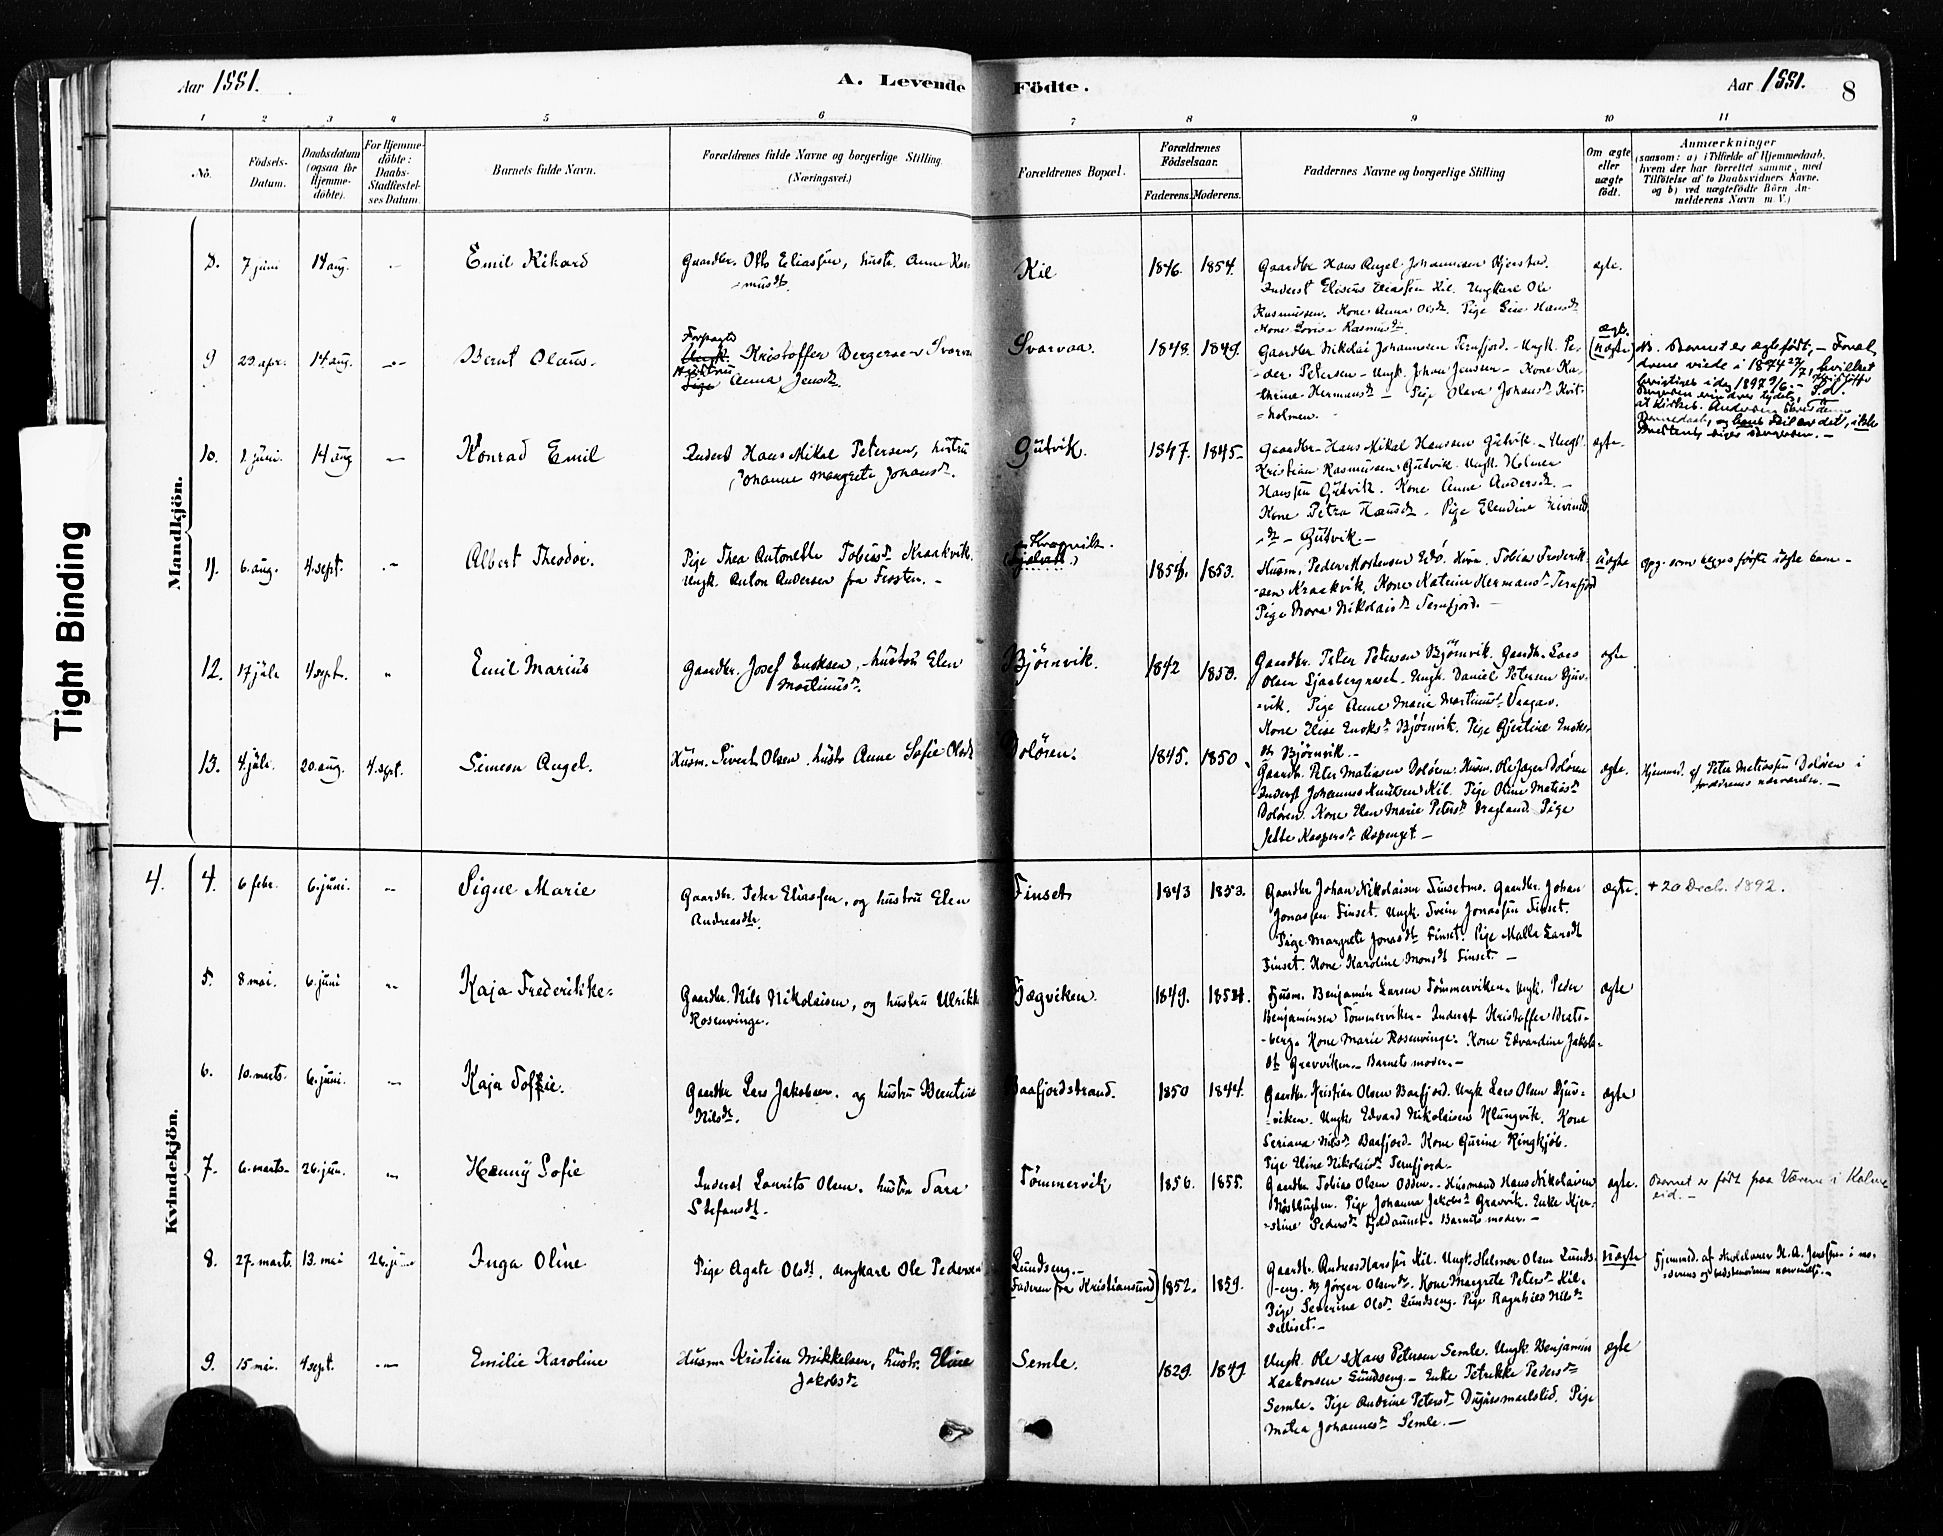 Aar 1881.
A. Levende Födte.
Aar 1881.
8
1 2 3 4 5 6 7 8 9 10 11
No.
Födsels-Datum.
Daabsdatum (ogsaa for Hjemme-döbte).
For Hjemme-döbte: Daabs-Stadfæstel-ses Datum.
Barnets fulde Navn.
Forældrenes fulde Navne og borgerlige Stilling (Næringsvei.)
Forældrenes Bopæl.
Forældrenes Födselsaar.
Faderens. Moderens.
Faddernes Navne og borgerlige Stilling
Om ægte eller uægte födt.
Anmærkninger
(saasom: a) i Tilfælde af Hjemmedaab,
hvem der har forrettet samme, med
Tilföielse af to Daabsvidners Navne,
og b) ved uægtefödte Börn An-
melderens Navn m. V.)
Tight Binding
Mandkjön.
8. 7 juni 14 aug. Emil Rikard
Gaardbr. Otto Eliassen, hustr. Anne Ras
musdt.
Kil 1846. 1854.
Gaardbr Hans Angel Johannesen Bjerstad.
Inderst Elisæus Eliassen Kil. Ungkarl Ole
Rasmussen. Kone Anna Olsdt. Pige Lise Hansdt
Kone Lovise Rasmusdt.
ægte.
9 29 apr. 14 aug. Bernt Olaus.
Forpagt
Ungk. Kristoffer Bergersen Svarva
Hustru
Pige Anna Jensdt.
Svarvaa. 1848. 1849.
Gaardbr Nikolai Johannsen Ternfjord. Ungk. Pe-
der Petersen - Ungk. Johan Jensen - Kone Ka-
thrine Hermansdt - Pige Olava Johansdt Kvit-
holmen.
ægte.
(uægte)
NB. Barnet er ægtefödt, - Foræl
drene viede i 1874 27/7, hvilket
10. 1 juni. 14 aug Konrad Emil
Inderst Hans Mikal Petersen, hustru
Johanne Margrete Johansdt.
Gutvik. 1847. 1845
Gaardbr Hans Mikal Hanssen Gutvik. - Ungk.
Kristian Rasmussen Gutvik. Ungk. Helmer
Hanssen Gutvik. Kone Anne Andersdt. -
Kone Petra Hansdt - Pige Elendine Eivind
dt - Gutvik. -
ægte.
11. 6. aug. 4. sept. Albert Theodor.
Pige Thea Antonette Tobiasdt Kraakvik.
Ungk. Anton Andersen fra Frosten. -
1854. 1853.
Husm. Peder Mortensen Edö. Husm. Tobias Frederik-
sen Kraakvik. Kone Katrine Hermansdt Ternfjord
Pige Nora Nikolaisdt Ternfjord. -
uægte
Opg. som begges förste uægte barn -
12. 17 juli 4 sept. Emil Marius
Gaardbr. Josef Enoksen, - hustru Elen
Martinusdt.
Bjørnvik. 1842 1853.
Gaardbr. Peter Petersen Bjørnvik. Gaardbr. Lars
Olsen Sjaabergnæset. Ungk. Daniel Petersen Djuv-
vik. Pige Anne Marie Martinusdt Vaagan.
Kone Elise Enoksdt Bjørnvik. Pige Gjertine Enoks-
dt Bjørnvik. -
ægte
13. 4 juli. 20. aug. 4. sept. Simeon Angel.
Husm. Sivert Olsen. hustr Anne Sofie Olsdt
Dolören. 1845. 1850.
Gaardb. Peter Matiasen Dolören. Husm. Ole Jæger Dolören
Inderst Johannes Knutsen Kil. Pige Oline Matiasdt
Dolören. Kone Elen Marie Petersdt Kragland. Pige
Jette Kaspersdt Aspenget. -
ægte.
Hjemmed. af Peter Matiassen Dolören i
forældrenes nærværelse. -
Kvindekjön.
4. 4. 6 febr. 6. juni. Signe Marie
Gaardbr. Peter Eliassen, og hustru Elen
Andreasdtr.
Finset 1843 1853.
Gaardbr Johan Nikolaisen Finsetmo. Gaardbr. Johan
Jonassen Finset. Ungk. Svein Jonassen Finset.
Pige Margrete Jonasdt Finset. Pige Malla Larsdt
Finset. Kone Karoline Monsdt Finset. -
ægte.
+ 20 Decb. 1892.
5. 8 mai. 6. juni Kaja Frederikke
Gaardbr. Nils Nikolaisen, og hustru Ulrikke
Rosenvinge.
Hægviken. 1849.
Husm. Benjamin Larsen Tömmerviken. Ungk. Peder
Benjaminsen Tömmerviken - Inderst Kristoffer Brats-
berg. Kone Marie Rosenvinge. Kone Edvardine Jakobs-
dt Gravviken. - Barnets moder. -
ægte
6. 10. marts. 6. juni. Kaja Soffie.
Gaardbr Lars Jakobsen. og hustru Berntine
Nilsdt.
Baafjordstrand. 1850 1844.
Gaardbr. Kristian Olsen Baafjord. Ungk Lars Olsen Djuv-
viken. Ungk. Edvard Nikolaisen Klungvik. Kone
Seriana Nilsdt Baafjord. Kone Gurine Ringkjöb.
Pige Eline Nikolaisdt Ternfjord. -
ægte
7. 6. marts 26. jun. Hanny Sofie
Inderst Laurits Olsen. hustru Sara
Stefansdt.
Tömmervik 1856. 1855.
Gaardbr Tobias Olsen Odden - Husmand Hans Nikolaisen
Mostbugten. Pige Johanna Jakobsdt Gravvik. Enke Kjer-
stine Pedersdt Fjeldaunet. Barnets moder. -
ægte.
Barnet er födt paa Værem i Kolme
eid. -
8. 27. marts. 13. mai 26. juni Inga Oline
Pige Agate Olsdt. ungkarl Ole Pedersen
Lundseng. -
Faderen fra Kristiansund) 1852. 1859.
Gaardbr. Andreas Hansen Kil. Ungk. Helmer Olsen Lunds-
eng. do Jörgen Olsen do. Kone Margrete Petersdt Kil.
Pige Severine Olsdt Lundseng. Pige Ragnhild Nilsdt
Selliset. -
uægte
Hjemmed. af skolelærer H. A. Jenssen i mo-
derens og bedstemoderens nærværelse. -
9. 15 mai. 4 sept. Emilie Karoline
Husm Kristian Mikkelsen, hustr. Eline
Jakobsdt
Semle. 1829. 1849.
Ungk. Ole Hans Petersen Semle. Ungk. Benjamin
Haakonsen Lundseng. - Enke Petrikke Pedersdt
Semle. Pige Andrine Petersdt
Matea Johannesdt Semle. -
ægte